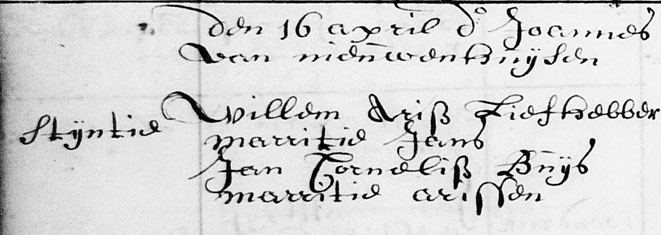 den 16 april do Joannes
van nieuwenhuijsen
Willem Ariß Liefhebber
Stijntie marritie Jans
Jan Corneliß Buijs
marritie arissen